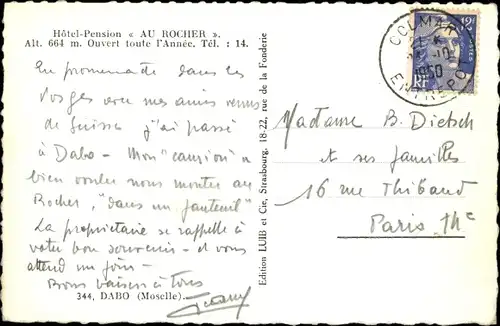 Hôtel-Pension « AU ROCHER ».
Alt. 664 m. Ouvert toute l'Année. Tél. : 14.
En promenade dans les
Vosges avec mes amis venus
de Suisse j'ai passé
à Dabo - Mon "camion" a
bien voulu nous monter au
Rocher, "dans un fauteuil"
La propriétaire se rappelle à
votre bon souvenir - et vous
attend un jour -
Bons baisers à tous
344, DABO (Moselle)
Edition LUIB et Cie, Strasbourg, 18-22, rue de la Fonderie
COLMAR
1950
ENTREPOT
12F
POSTES
RF
Madame B. Dietsch
et ses familles
16 rue Thibaud
Paris 14e